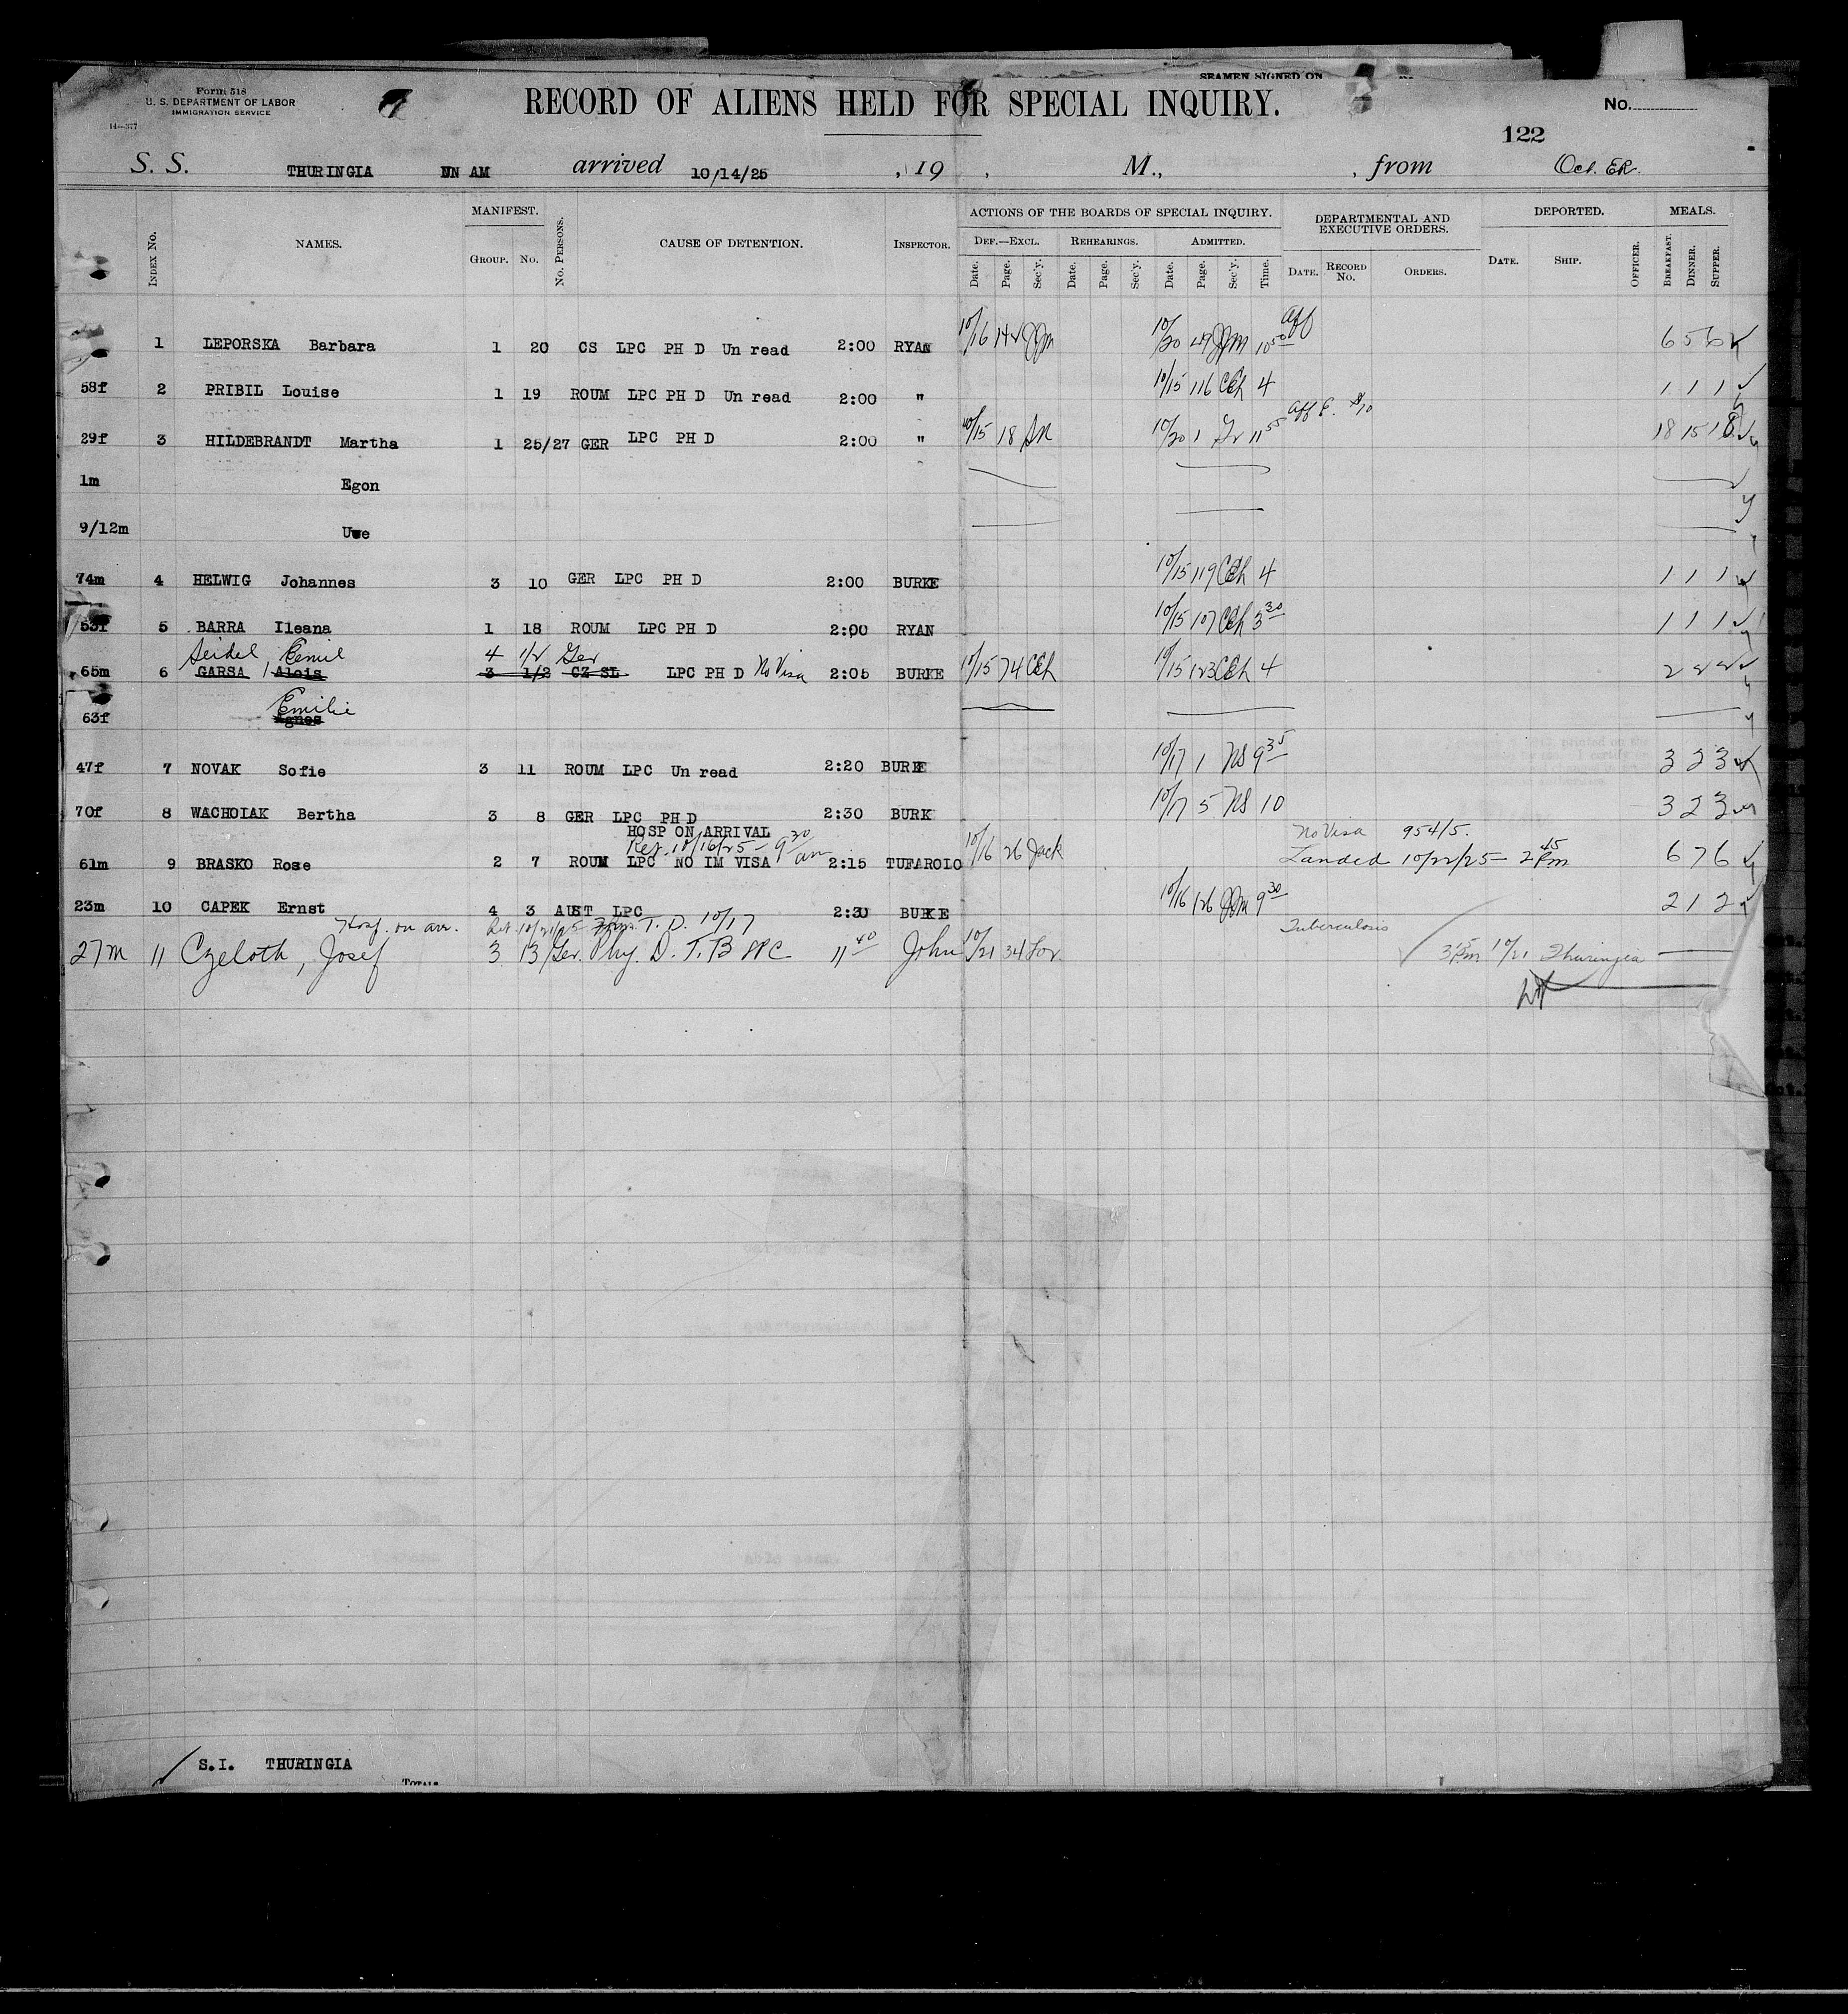 SEAMEN SIGNED ON
Form 518
U. S. DEPARTMENT OF LABOR
IMMIGRATION SERVICE
14-377
RECORD OF ALIENS HELD FOR SPECIAL INQUIRY.
No.
122
S. S. THURINGIA NN AM arrived 10/14/25, 19 , M., , from Oct. ER.
INDEX No. NAMES. MANIFEST. GROUP. No. No. PERSONS. CAUSE OF DETENTION. INSPECTOR.
ACTIONS OF THE BOARDS OF SPECIAL INQUIRY. DEPARTMENTAL AND EXECUTIVE ORDERS. DEPORTED. MEALS.
DEF.—EXCL. REHEARINGS. ADMITTED.
Date. Page. Sec'y. Date. Page. Sec'y. Date. Page. Sec'y. Time. DATE. RECORD No. ORDERS. DATE. SHIP. OFFICER. BREAKFAST. DINNER. SUPPER.
1 LEPORSKA Barbara 1 20 CS LPC PH D Un read 2:00 RYAN 10/16 142 JJM 10/20 JJM 10 50 Aff 6 5 6
58f 2 PRIBIL Louise 1 19 ROUM LPC PH D Un read 2:00 " 10/15 116 CEh 4 1 1 1
29f 3 HILDEBRANDT Martha 1 25/27 GER LPC PH D 2:00 " 10/15 18 10/20 1 11 55 Aff 18 15 18
1m Egon
9/12m Uwe
74m 4 HELWIG Johannes 3 10 GER LPC PH D 2:00 BURKE 10/15 119 CEh 4 1 1 1
53f 5 BARRA Ileana 1 18 ROUM LPC PH D 2:00 RYAN 10/15 107 CEh 3 30 1 1 1
Seidel Emil 4 1/2 Ger
65m 6 GARSA Alois 3 1/2 CZ SL LPC PH D No Visa 2:05 BURKE 10/15 74 CEh 10/15 123 CEh 4 2 2 2
Emilie
63f Agnes
47f 7 NOVAK Sofie 3 11 ROUM LPC Un read 2:20 BURKE 10/17 1 NS 9 35 3 2 3
70f 8 WACHOIAK Bertha 3 8 GER LPC PH D 2:30 BURK 10/17 5 NS 10 3 2 3
HOSP ON ARRIVAL
Ret. 10/16/25 - 9 30 am No Visa 954/5.
61m 9 BRASKO Rose 2 7 ROUM LPC NO IM VISA 2:15 TUFAROLO 10/16 26 Jack Landed 10/22/25 - 2 45 Pm 6 7 6
23m 10 CAPEK Ernst 4 3 AUST LPC 2:30 BURKE 10/16 126 JJM 9 30 2 1 2
Hosp. on arr. Ret. 10/21/25 T. D. 10/17 Tuberculosis
27m 11 Czeloth, Josef 3 13 Ger. Phy. D. T.B LPC 11 40 John 10/21 34 Lov. 3 15 Pm 10/21 Thuringia
S.I. THURINGIA
TOTALS